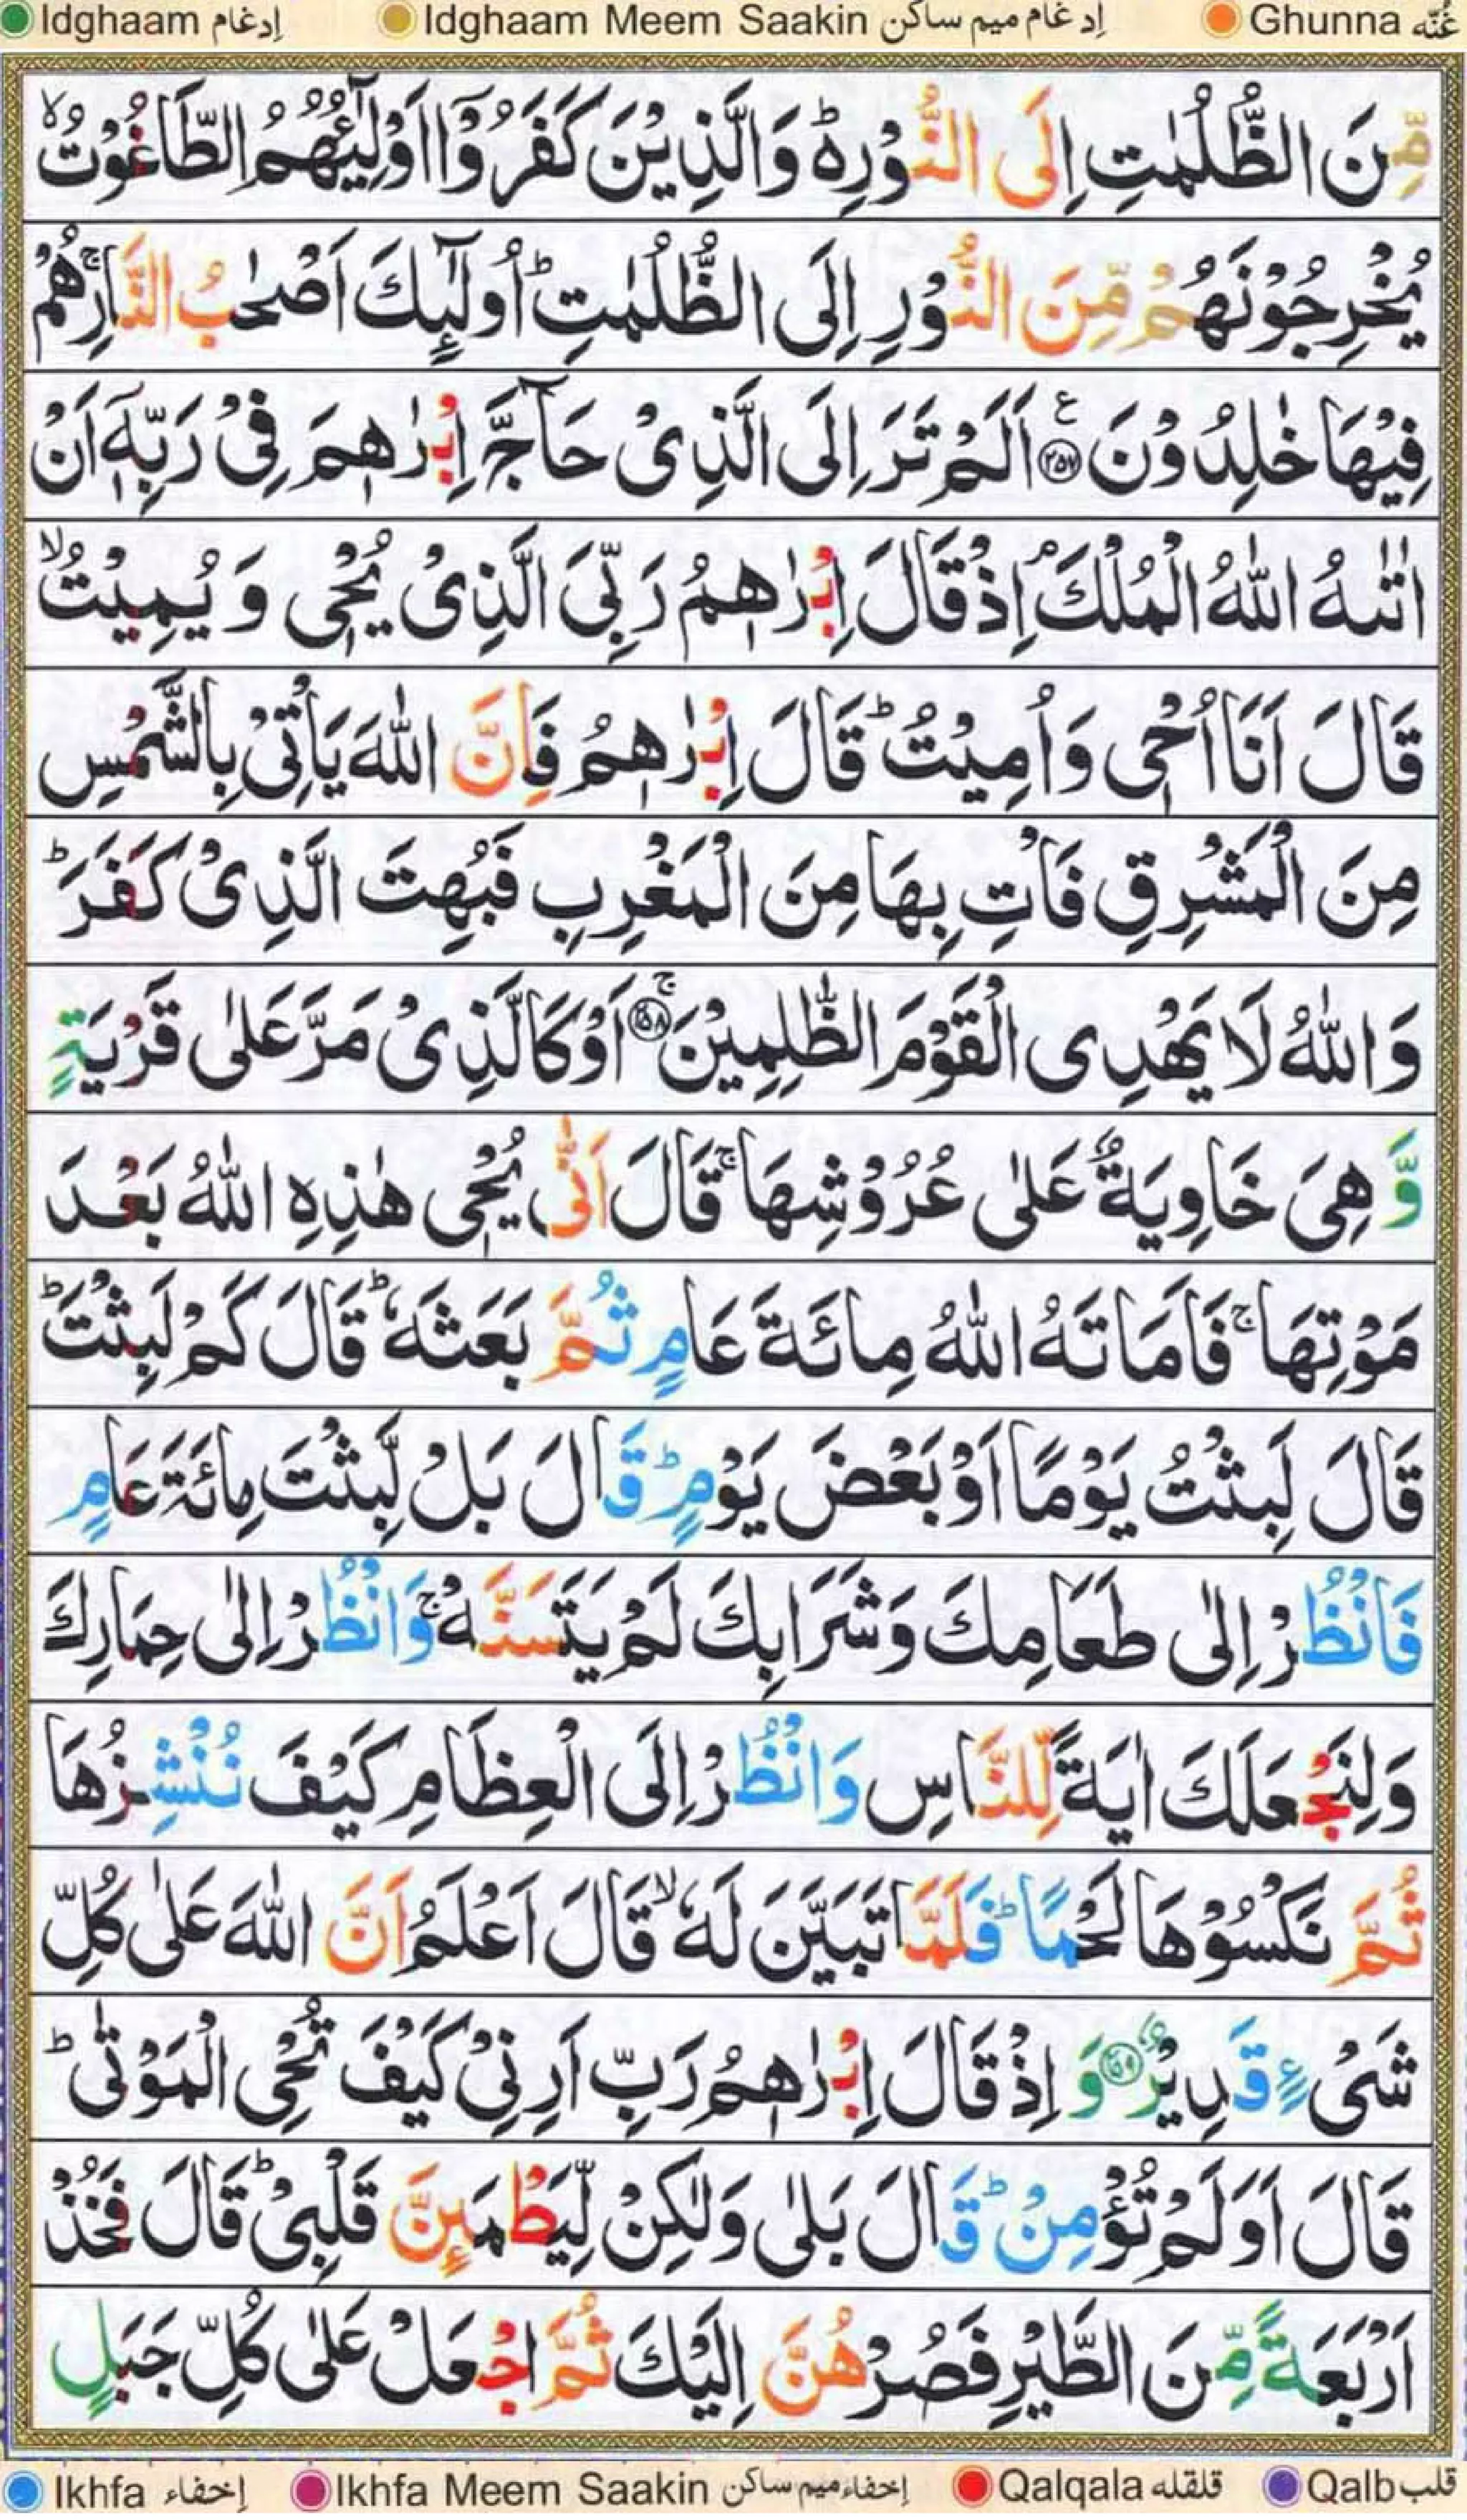 Idghaam إدغام Idghaam Meem Saakin إدغام ميم ساكن Ghunna غُنَّه
مِّنَ الظُّلُمٰتِ اِلَى النُّوْرِ۬ؕ وَالَّذِيْنَ كَفَرُوْۤا اَوْلِيٰٓـُٔهُمُ الطَّاغُوْتُۙ
يُخْرِجُوْنَهُمْ مِّنَ النُّوْرِ اِلَى الظُّلُمٰتِؕ اُولٰٓئِكَ اَصْحٰبُ النَّارِۚ هُمْ
فِيْهَا خٰلِدُوْنَ ۝٢٥٧ع اَلَمْ تَرَ اِلَى الَّذِىْ حَآجَّ اِبْرٰهٖمَ فِىْ رَبِّهٖۤ اَنْ
اٰتٰىهُ اللّٰهُ الْمُلْكَۘ اِذْ قَالَ اِبْرٰهٖمُ رَبِّىَ الَّذِىْ يُحْىٖ وَ يُمِيْتُۙ
قَالَ اَنَا اُحْىٖ وَاُمِيْتُؕ قَالَ اِبْرٰهٖمُ فَاِنَّ اللّٰهَ يَاْتِىْ بِالشَّمْسِ
مِنَ الْمَشْرِقِ فَاْتِ بِهَا مِنَ الْمَغْرِبِ فَبُهِتَ الَّذِىْ كَفَرَؕ
وَاللّٰهُ لَا يَهْدِى الْقَوْمَ الظّٰلِمِيْنَۚ ۝٢٥٨ اَوْ كَالَّذِىْ مَرَّ عَلٰى قَرْيَةٍ
وَّهِىَ خَاوِيَةٌ عَلٰى عُرُوْشِهَاۚ قَالَ اَنّٰى يُحْىٖ هٰذِهِ اللّٰهُ بَعْدَ
مَوْتِهَاۚ فَاَمَاتَهُ اللّٰهُ مِائَةَ عَامٍ ثُمَّ بَعَثَهٗؕ قَالَ كَمْ لَبِثْتَؕ
قَالَ لَبِثْتُ يَوْمًا اَوْ بَعْضَ يَوْمٍؕ قَالَ بَلْ لَّبِثْتَ مِائَةَ عَامٍ
فَانْظُرْ اِلٰى طَعَامِكَ وَشَرَابِكَ لَمْ يَتَسَنَّهْۚ وَانْظُرْ اِلٰى حِمَارِكَ
وَلِنَجْعَلَكَ اٰيَةً لِّلنَّاسِ وَانْظُرْ اِلَى الْعِظَامِ كَيْفَ نُنْشِزُهَا
ثُمَّ نَكْسُوْهَا لَحْمًاؕ فَلَمَّا تَبَيَّنَ لَهٗۙ قَالَ اَعْلَمُ اَنَّ اللّٰهَ عَلٰى كُلِّ
شَىْءٍ قَدِيْرٌ ۝٢٥٩ وَ اِذْ قَالَ اِبْرٰهٖمُ رَبِّ اَرِنِىْ كَيْفَ تُحْىِ الْمَوْتٰىؕ
قَالَ اَوَلَمْ تُؤْمِنْؕ قَالَ بَلٰى وَلٰكِنْ لِّيَطْمَئِنَّ قَلْبِىْؕ قَالَ فَخُذْ
اَرْبَعَةً مِّنَ الطَّيْرِ فَصُرْهُنَّ اِلَيْكَ ثُمَّ اجْعَلْ عَلٰى كُلِّ جَبَلٍ
Ikhfa إخفاء Ikhfa Meem Saakin إخفاء ميم ساكن Qalqala قلقله Qalb قلب